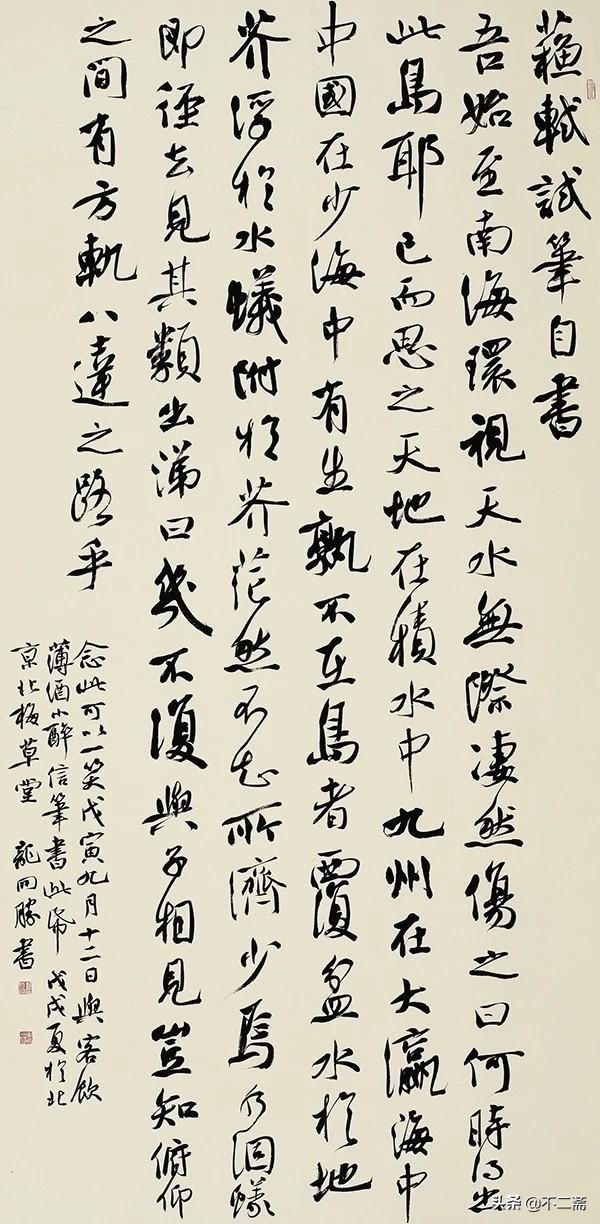 蘓軾試筆自書
吾始至南海環視天水無際凄然傷之曰何時得出
此島耶已而思之天地在積水中九州在大瀛海中
中國在少海中有生孰不在島者覆盆水於地
芥浮於水蟻附於芥茫然不知所濟少焉水涸蟻
即徑去見其類出涕曰幾不復與子相見豈知俯仰
之間有方軌八達之路乎
念此可以一笑戊寅九月十二日與客飲
薄酒小醉信筆書此紙 戊戌夏於北
京北梅草堂 龍開勝書
头条 @不二斋